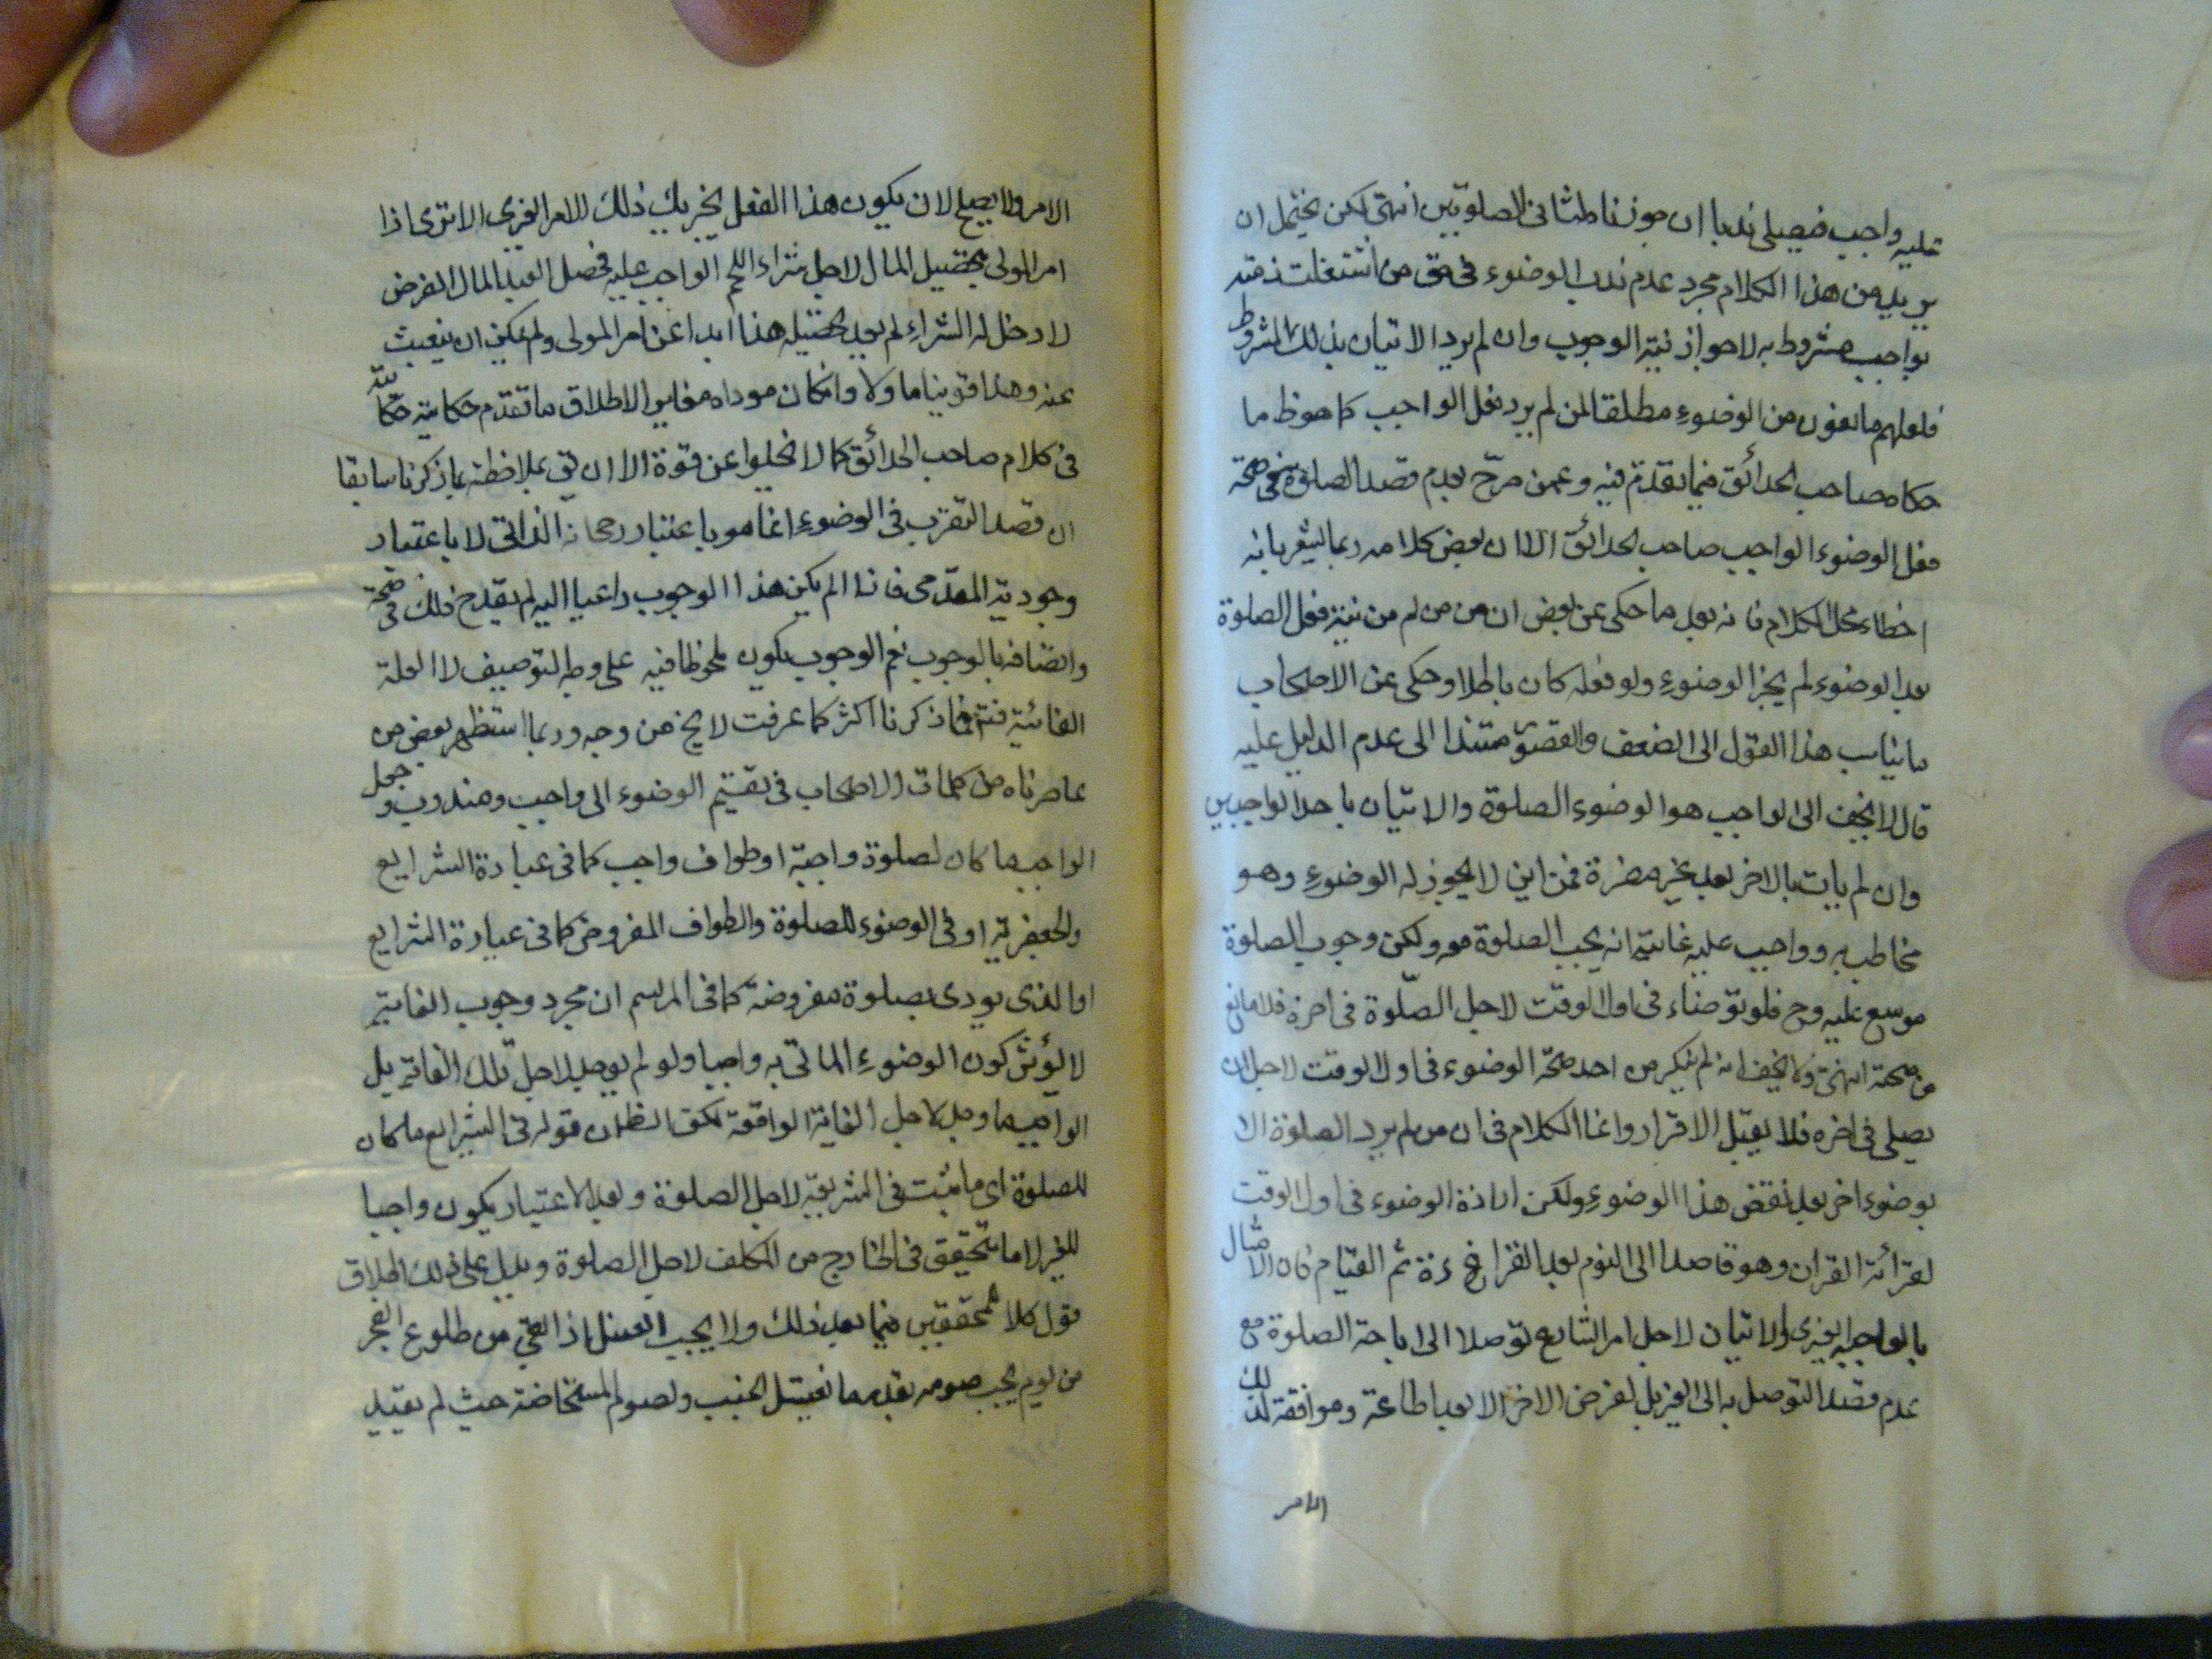 عليه واجب فيصلي ندبا ان جوزناطثا في الصلوتين انتهى لكن يحتمل ان
يريد من هذا الكلام مجرد عدم ندب الوضوء في حق من اشتغلت ذمته
بواجب مشروط به لا جواز نية الوجوب وان لم يرد الاتيان بذلك المشروط
فلعلهم مانعون من الوضوء مطلقا لمن لم يرد فعل الواجب كما هو ظ ما
حكاه صاحب الحدائق فيما تقدم فيه وعمن صرح بعدم قصد الصلوة في صحة
فعل الوضوء الواجب صاحب الحدائق الا ان بعض كلامه ربما يشعر بانه
اخطاء محل الكلام فانه بعد ما حكى عن بعض ان من لم من نية فعل الصلوة
بعد الوضوء لم يجز الوضوء ولو فعله كان باطلا وحكى عن الاصحاب
ما يناسب هذا القول الى الضعف والقصور مستندا الى عدم الدليل عليه
قال لا يخفى ان الواجب هو الوضوء الصلوة والاتيان باحد الواجبين
وان لم يات بالاخر بعد غير مضرة فمن اين لا يجوز له الوضوء وهو
مخاطب به وواجب عليه غايته انه يجب الصلوة معه ولكن وجوب الصلوة
موسع عليه وح فلو توضاء في اول الوقت لاجل الصلوة في اخره فلا مانع
من صحته انتهى ولا يخفى انه لم ينكر من احد صحة الوضوء في اول الوقت لاجل ان
يصلي في اخره فلا يقبل الاقرار وانما الكلام في ان من لم يرد الصلوة الا
بوضوء اخر بعد نقض هذا الوضوء ولكن اراد الوضوء في اول الوقت
لقرائة القران وهو قاصد الى النوم بعد القراءة ثم القيام فان الامتثال
بالواجب الغيري والاتيان لاجل امر الشارع توصلا الى اباحة الصلوة مع
عدم قصد التوصل به الى الغير بل لغرض الاخر لا يعد اطاعة وموافقة لذلك
الامر
الامر ولا يصلح لان يكون هذا الفعل بتحريك ذلك الامر الغيري الا ترى اذا
امر المولى بتحصيل المال لاجل شراء اللحم الواجب عليه فحصل العبد المال لغرض
لا دخل له الشراء لم يعد تحصيله هذا ابدا عن امر المولى ولم يكن ان ينبعث
عنه وهذا قوينا ما اولا وان كان موداه مغايرا لاطلاق ما تقدم حكايته
في كلام صاحب الحدائق كما لا يخلوا عن قوة الا ان يق بملاحظة ما ذكرنا سابقا
ان قصد التقرب في الوضوء انما هو باعتبار رجحانه الذاتي لا باعتبار
وجوديته المقدمي فاذا لم يكن هذا الوجوب داعيا اليه لم يقدح ذلك في صحة
واتصافه بالوجوب نعم الوجوب يكون ملحوظا فيه على وجه التوصيف لا العلة
الغائية فما ذكرنا اكثر كما عرفت لا يخ من وجه وربما استظهر بعض من
عاصرناه من كلمات الاصحاب في تقسيم الوضوء الى واجب ومندوب وجعل
الواجب ما كان لصلوة واجبة او طواف واجب كما في عبارة الشرايع
والجعفرية او في الوضوء للصلوة والطواف المفروض كما في عبارة الشرايع
او الذي يودى به صلوة مفروضة كما في المراسم ان مجرد وجوب الغاية
لا يؤثر كون الوضوء الماتي به واجبا ولو لم يوجد لاجل تلك الغاية بل
الواجب ما وجد لاجل الغاية الواقعة لكن الظ ان قوله في الشرايع ما كان
للصلوة اي ما يثبت في الشريعة لاجل الصلوة وبعد الاعتبار يكون واجبا
للغير لا ما يتحقق في الخارج من المكلف لاجل الصلوة ويدل على ذلك اطلاق
قول كلا المحققين فيما بعد ذلك ولا يجب الغسل اذا بقي من طلوع الفجر
من يوم يجب صومه بقدر ما يغتسل الجنب ولصوم المستحاضة حيث لم يقيد